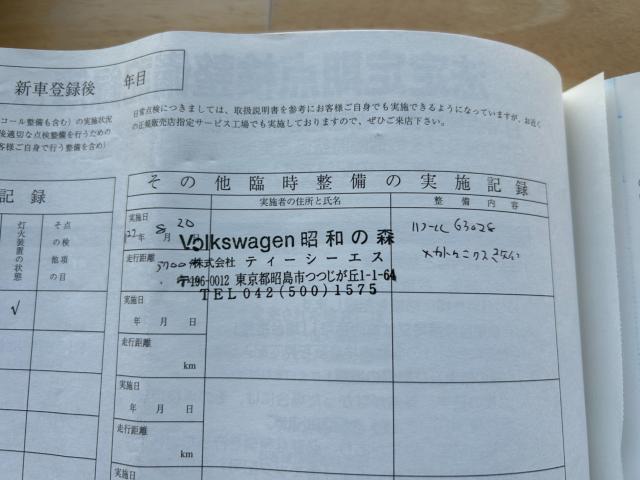 新車登録後 年目
コール整備も含む）の実施状況
後適切な点検整備を行うための
客様ご自身で行う整備を含め）
日常点検につきましては、取扱説明書を参考にお客様ご自身でも実施できるようになっていますが、お近く
の正規販売店指定サービス工場でも実施しておりますので、ぜひご来店下さい。
記録
灯火装置の状態
その他の点検項目
√
その他臨時整備の実施記録
実施者の住所と氏名
整備内容
実施日
22年 8月 20日
走行距離
3700
リコール 63G28
メカトロニクス
Volkswagen 昭和の森
株式会社 ティーシーエス
〒196-0012 東京都昭島市つつじが丘1-1-64
TEL 042(500)1575
実施日
年 月 日
走行距離
km
実施日
年 月 日
走行距離
km
実施日